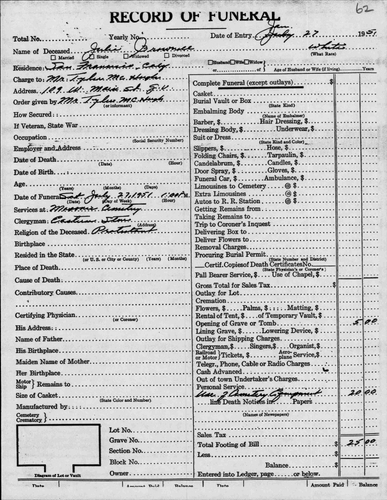 62
RECORD OF FUNERAL
Total No. Yearly No. Date of Entry Jan July 27 1951
Name of Deceased Julia
Married Single Widowed Divorced White (What Race)
Residence San Francisco, Calif Husband Wife Widow or Age of Husband or Wife (if living)
Charge to Mr. Tyler McHugh
Address 129 W. Main St. G.V.
Order given by Mr. Tyler McHugh (or informant)
How Secured
If Veteran, State War
Occupation (Social Security Number)
Employer and Address
Date of Death (Hour)
Date of Birth
Age (Years) (Months) (Days)
Date of Funeral Sat July 27 1951 (Day of Week) (Hour)
Services at Masonic Cemetery
Clergyman (Address)
Religion of the Deceased Protestant
Birthplace
Resided in the State (or U. S. or City or County) (Years) (Months) (Days)
Place of Death
Cause of Death
Contributory Causes
Certifying Physician (or Coroner)
His Address
Name of Father
His Birthplace
Maiden Name of Mother
Her Birthplace
Motor Ship Remains to
Size of Casket (State Color and Number)
Manufactured by
Cemetery Crematory
Lot No.
Grave No.
Section No.
Block No.
Owner
Diagram of Lot or Vault
Complete Funeral (except outlays)
Casket
Burial Vault or Box (State Kind)
Embalming Body (Name of Embalmer)
Barber, $ Hair Dressing, $
Dressing Body, $ Underwear, $
Suit or Dress (State Kind and Color)
Slippers, $ Hose, $
Folding Chairs, $ Tarpaulin, $
Candelabrum, $ Candles, $
Door Spray, $ Gloves, $
Funeral Car, $ Ambulance, $
Limousines to Cemetery @ $
Extra Limousines @ $
Autos to R. R. Station @ $
Getting Remains from
Taking Remains to
Trip to Coroner's Inquest
Delivering Box to
Deliver Flowers to
Removal Charges
Procuring Burial Permit (State Number and District)
Certif. Copies of Death Certificates No. (State Physician's or Coroner's)
Pall Bearer Service, $ Use of Chapel, $
Gross Total for Sales Tax $
Outlay for Lot
Cremation
Flowers, $ Palms, $ Matting, $
Rental of Tent, $ of Temporary Vault, $
Opening of Grave or Tomb 5 00
Lining Grave, $ Lowering Device, $
Outlay for Shipping Charges
Clergyman, $ Singers, $ Organist, $
Railroad or Motor Tickets, $ Aeroplane Service, $
Telegr., Phone, Cable or Radio Charges
Cash Advanced
Out of town Undertaker's Charges
Personal Service
Use of Cemetery Equipment 20 00
Death Notices in Papers
(Names of Newspapers)
Sales Tax
Total Footing of Bill $ 25 00
Less
Balance
Entered into Ledger, page or below.
Date Amount Paid Balance Date Amount Paid Balance